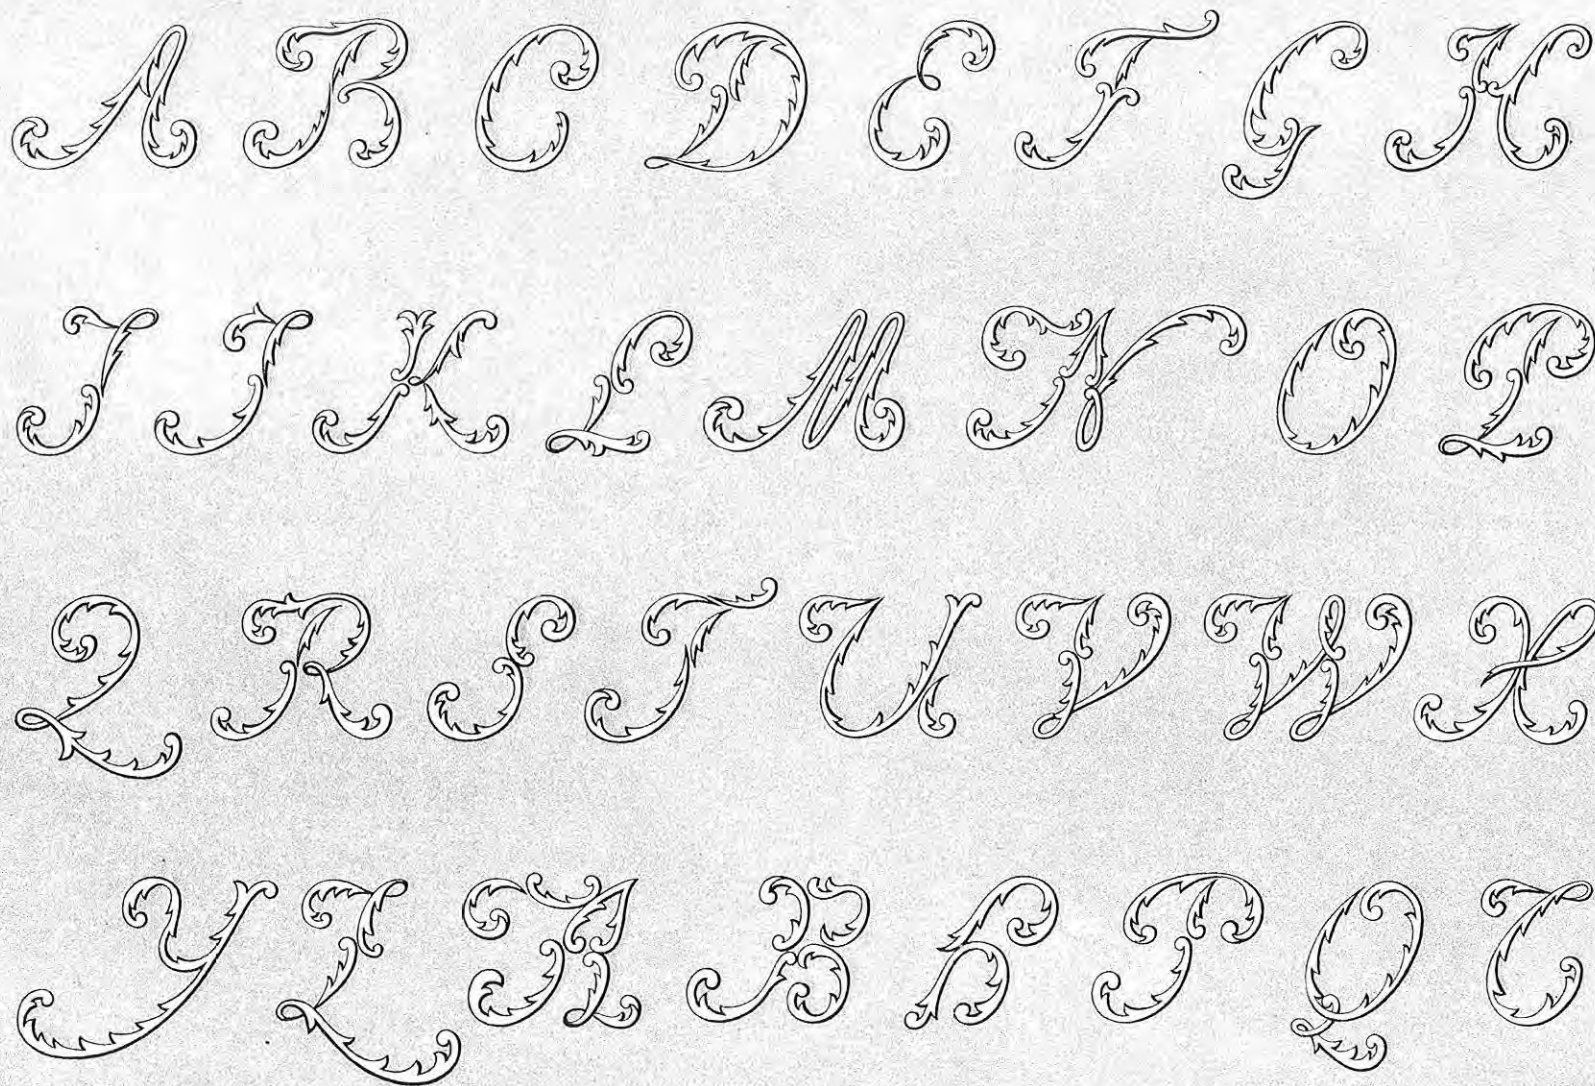 A B C D E F G H
I J K L M N O P
Q R S T U V W X
Y Z A B H P Q T